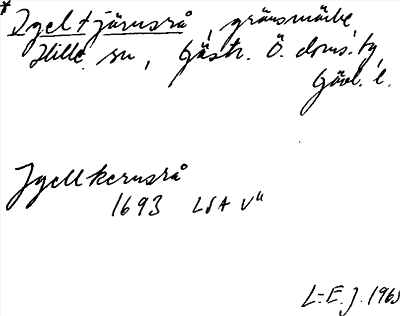 * Igeltjärnsrå, gränsmärke,
Hille sn, Gästr. Ö. doms. tg,
Gävl. l.
Igellkernsrå
1693 LSA V"
L-E. J. 1965